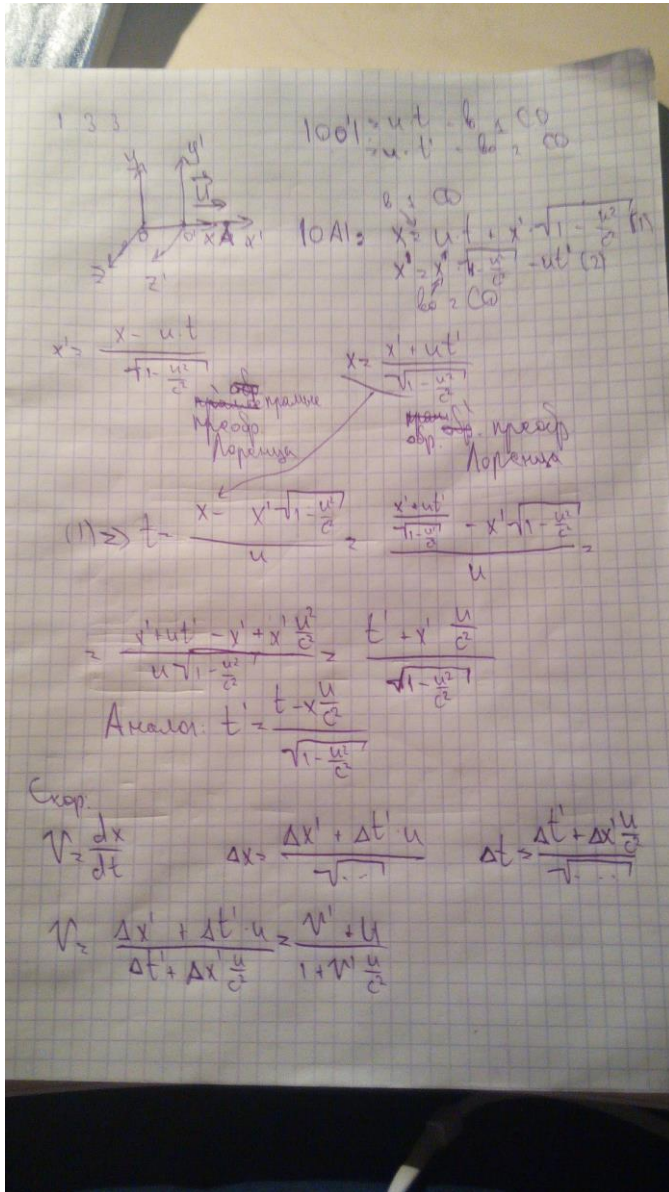 1 3 3
|OO'| = u t - в 1 CO
= u · t' - во 2 CO
y y' u⃗
O O' x A x'
z z'
в 1 CO
|OA|: x = u · t + x' · √(1 - u²/c²) (1)
x' = x · √(1 - u²/c²) - ut' (2)
во 2 CO
x' = (x - u · t) / √(1 - u²/c²)
x = (x' + ut') / √(1 - u²/c²)
прямые
преобр.
Лоренца
обр. преобр
Лоренца
(1) => t = (x - x' √(1 - u²/c²)) / u = ((x' + ut') / √(1 - u²/c²) - x' √(1 - u²/c²)) / u =
= (x' + ut' - x' + x' u²/c²) / (u √(1 - u²/c²)) = (t' + x' u/c²) / √(1 - u²/c²)
Аналог. t' = (t - x u/c²) / √(1 - u²/c²)
Скор.
V = dx/dt Δx = (Δx' + Δt' · u) / √(...) Δt = (Δt' + Δx' u/c²) / √(...)
V = (Δx' + Δt' · u) / (Δt' + Δx' u/c²) = (V' + u) / (1 + V' u/c²)